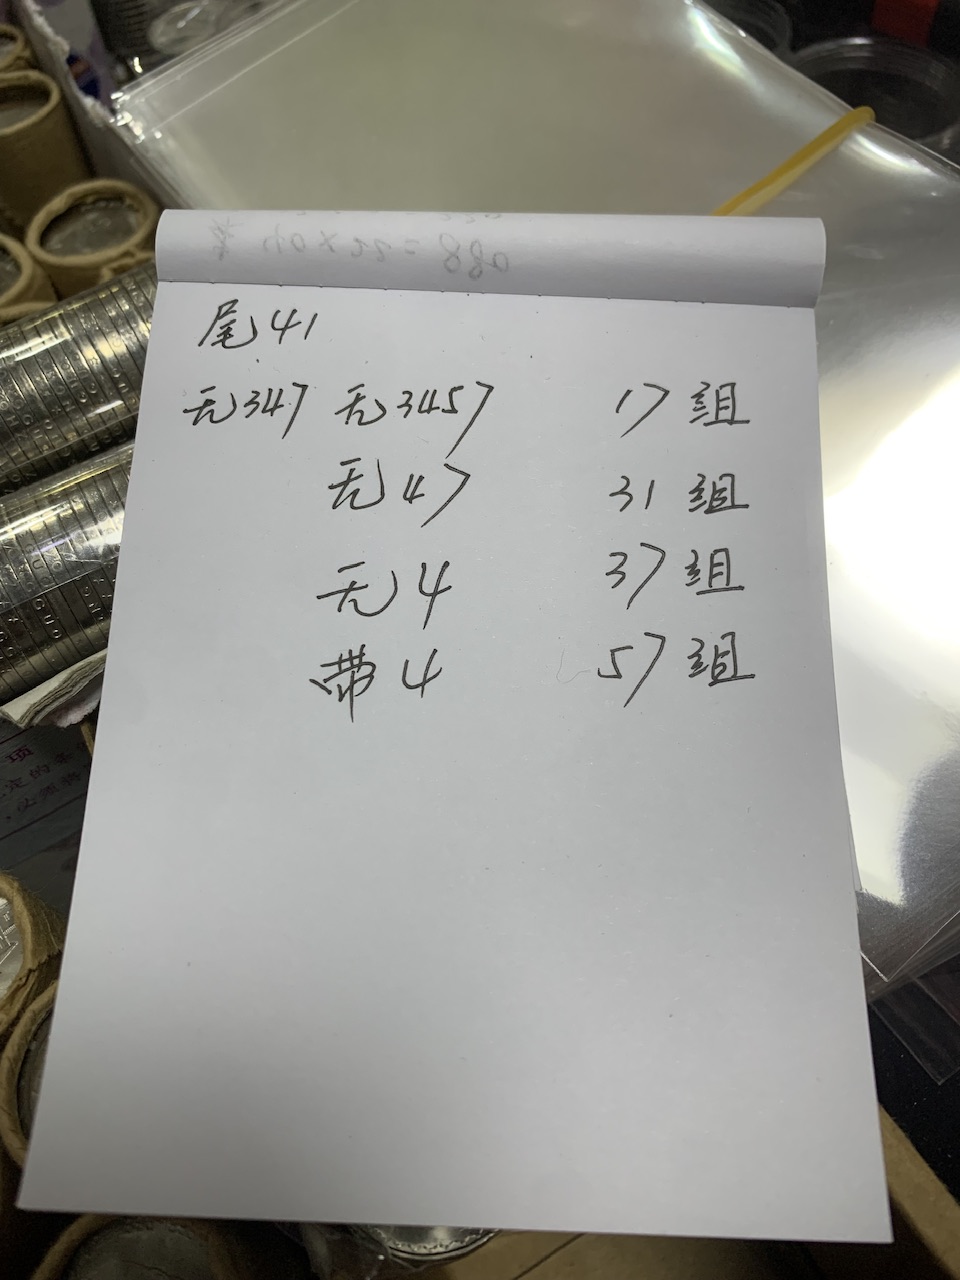 尾41
无347 无3457 17组
无47 31组
无4 37组
带4 57组